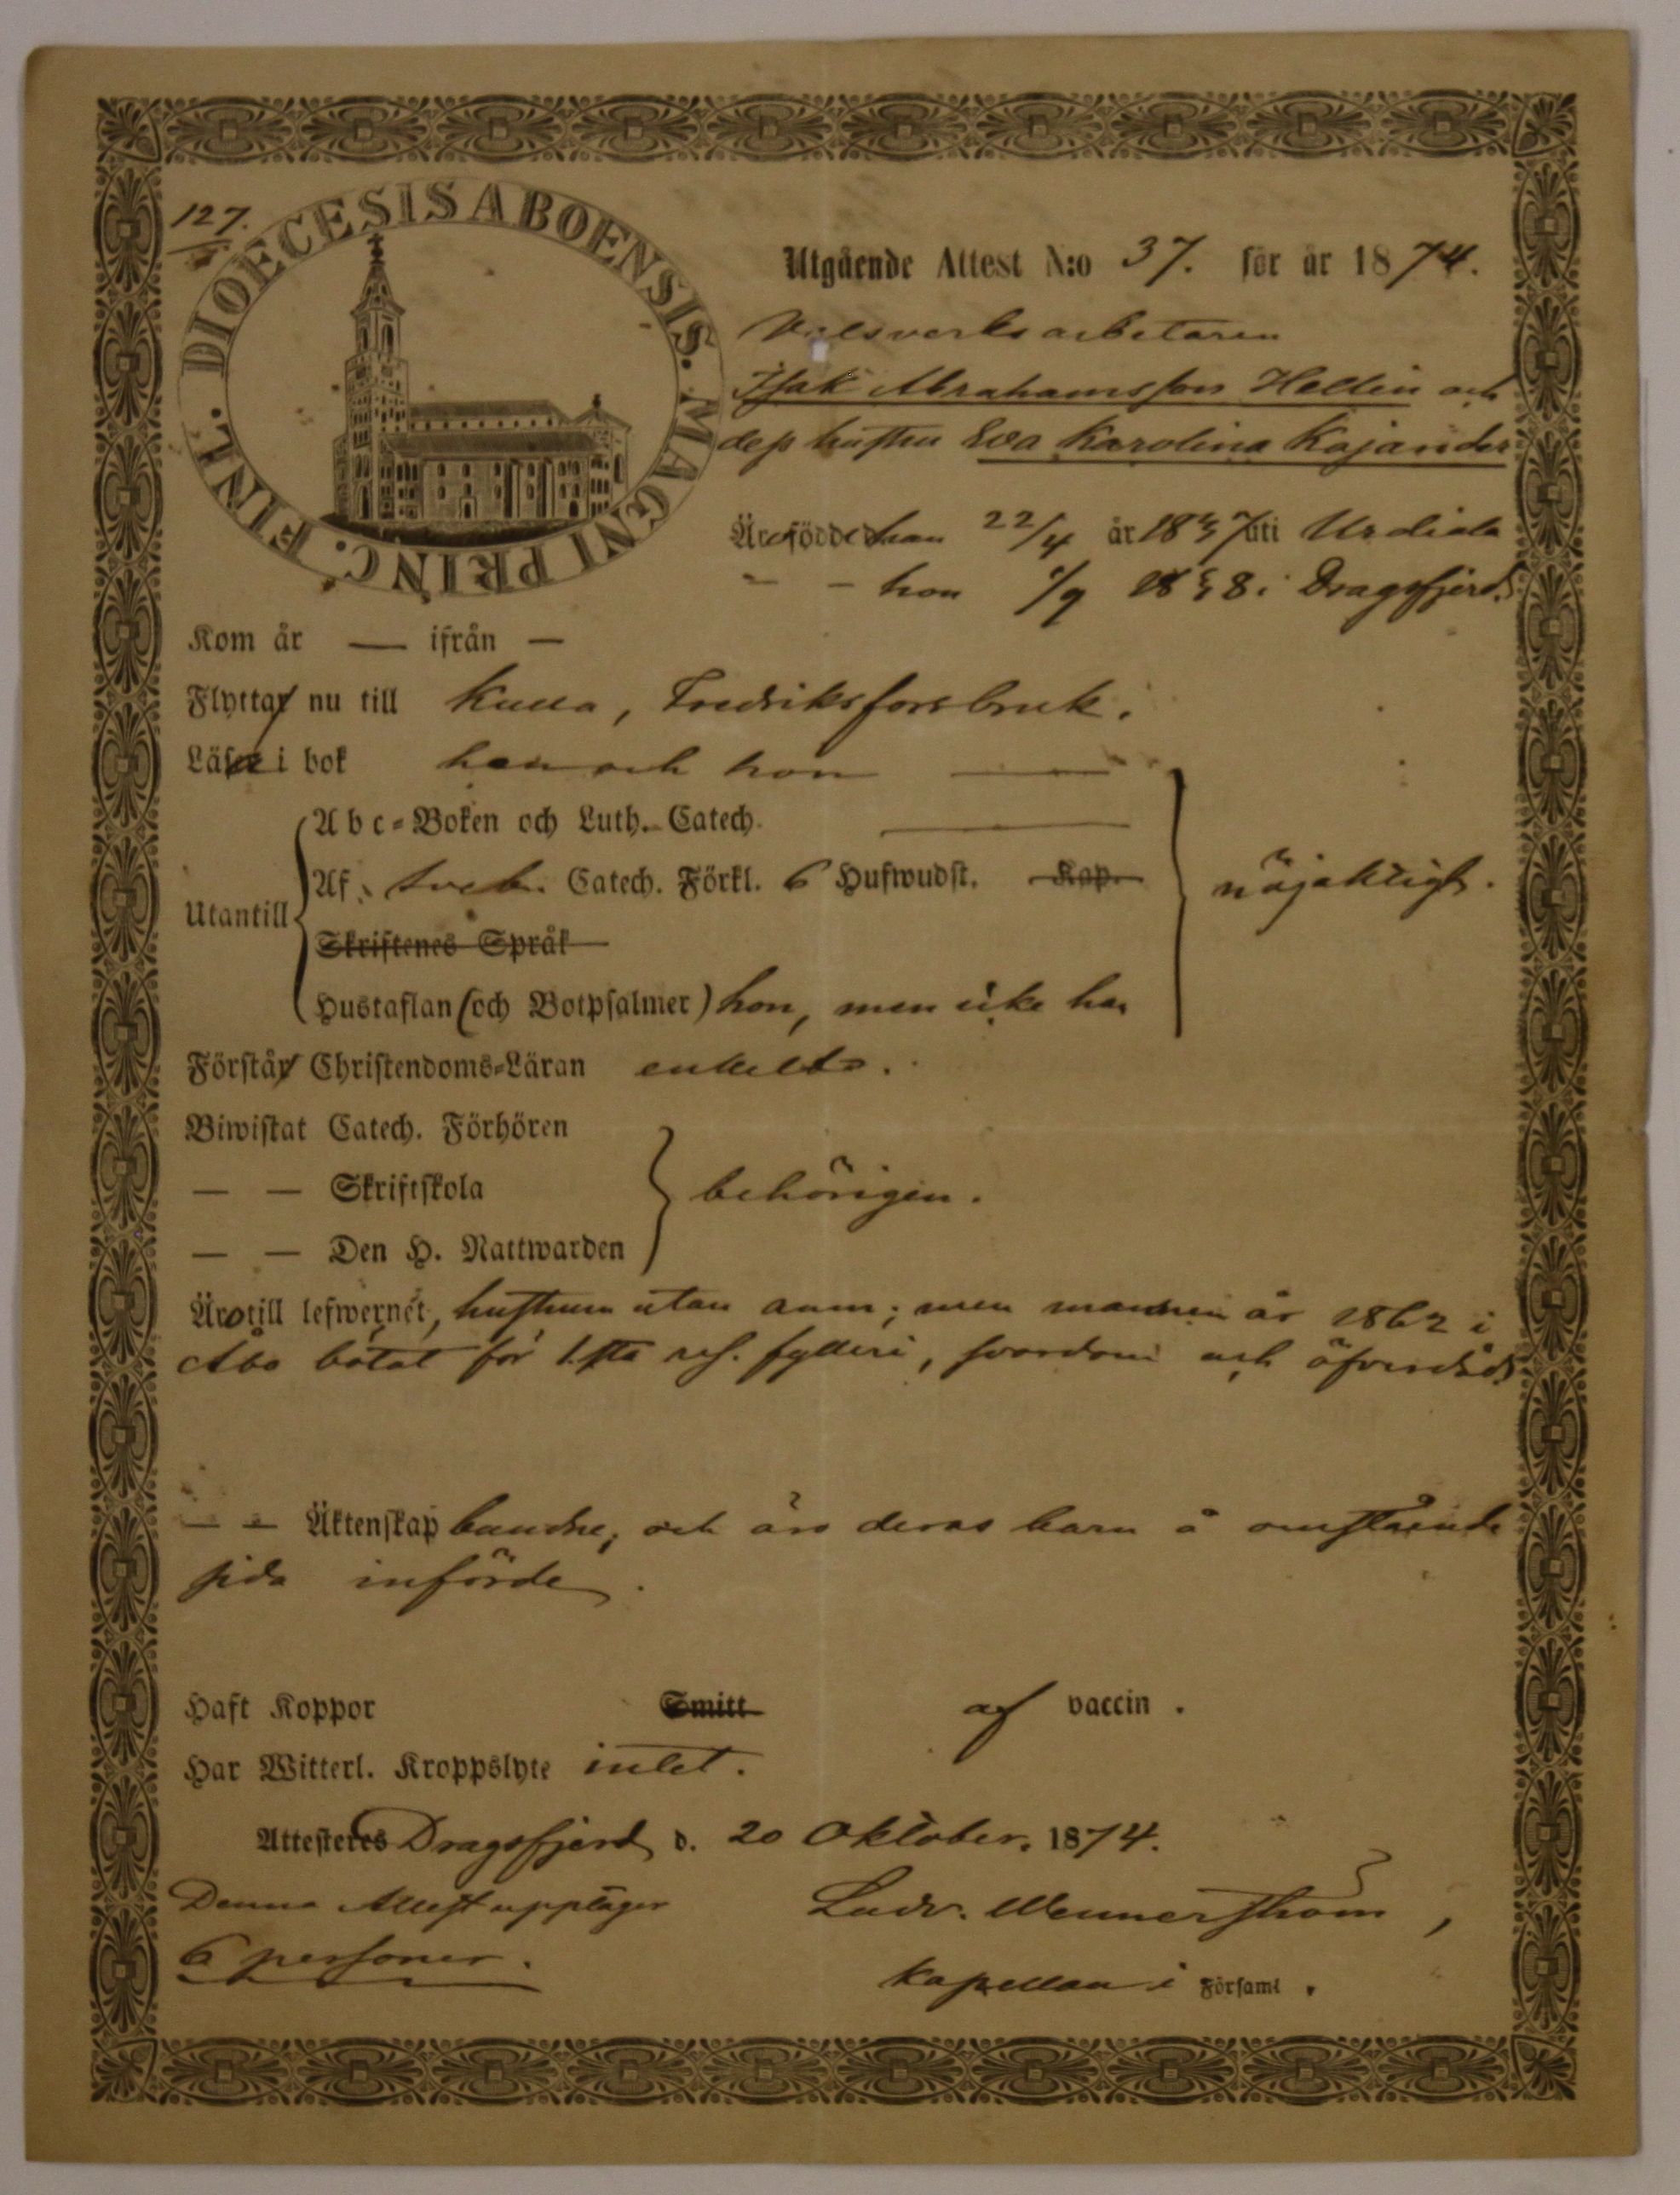 127.
DIOECESIS ABOENSIS. MAGNI PRINC. FINL.
Utgående Attest N:o 37. för år 1874.
Valsverksarbetaren
Isak Abrahamsson Hellin och
dess hustru Eva Karolina Kajander
Äro födde han 22/4 år 1837 uti Urdiala
— — hon /9 1838 i Dragsfjerd.
Kom år — ifrån —
Flytta nu till Kulla, Fredriksforsbruk.
Läsa i bok han och hon —
Abc-Boken och Luth. Catech. —
Af Sveb. Catech. Förkl. 6 Hufwudst. Kap. nöjaktigt.
Utantill
Skriftenes Språk
Hustaflan (och Botpsalmer) hon, men icke han
Förstå Christendoms-Läran enkelt.
Biwistat Catech. Förhören
— — Skriftskola behörigen.
— — Den H. Nattwarden
Äro till lefwernet, hustrun utan anm; men mannen år 1862 i
Åbo bötat för 1sta res. fylleri, svordom och öfverdåd.
— — Äktenskap bundne, och äro deras barn å omstående
sida införde.
Haft Koppor Smitt af vaccin.
Har Witterl. Kroppslyte intet.
Attesteres Dragsfjerd d. 20 Oktober. 1874.
Denna Attest upptager Ludv. Wennerström,
6 personer. kapellan i Församl.